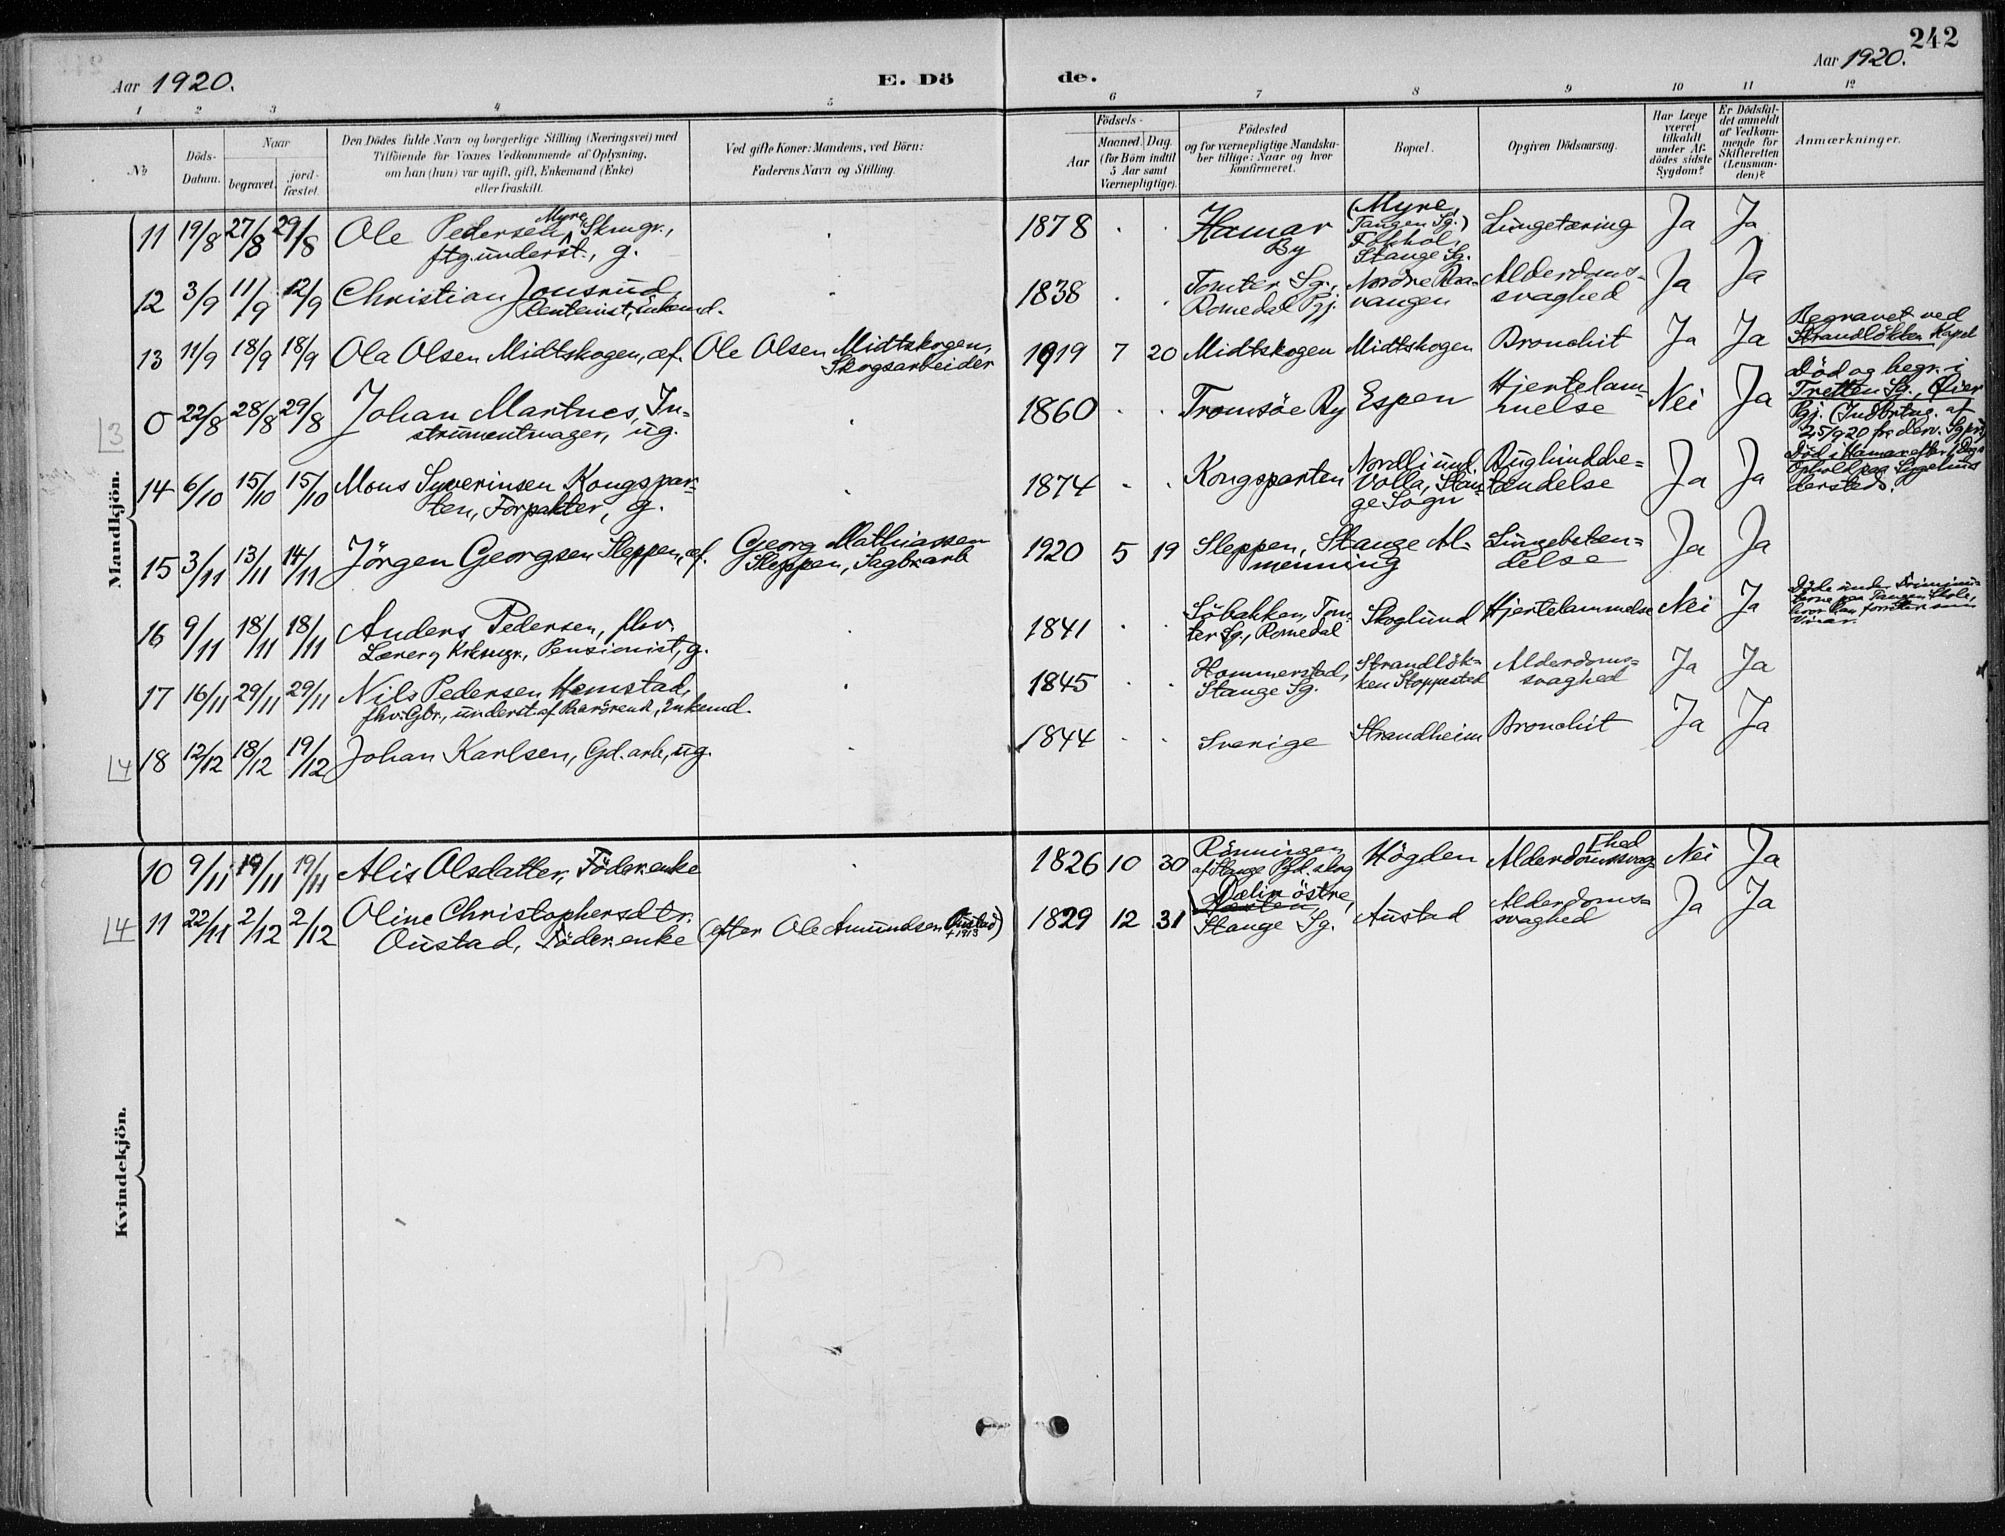 242
Aar 1920.
E. Döde.
Aar 1920.
1 2 3 4 5 6 7 8 9 10 11 12
No
Döds-Datum.
Naar
begravet.
jord-fæstet.
Den Dödes fulde Navn og borgerlige Stilling (Næringsvei) med
Tilföiende for Voxnes Vedkommende af Oplysning,
om han (hun) var ugift, gift, Enkemand (Enke)
eller fraskilt.
Ved gifte Koner: Mandens, ved Börn:
Faderens Navn og Stilling.
Födsels-
Aar
Maaned. Dag.
(for Börn indtil
5 Aar samt
Værnepligtige).
Födested
og for værnepligtige Mandska-
ber tillige: Naar og hvor
konfirmeret.
Bopæl.
Opgiven Dödsaarsag.
Har Læge
været
tilkaldt
under Af-
dödes sidste
Sygdom?
Er Dödsfal-
det anmeldt
af Vedkom-
mende for
Skifteretten
(Lensman-
den)?
Anmærkninger.
Mandkjön.
11 19/8 27/8 29/8 Ole Pedersen Myre, Skmgr.,
ftg. underst., g.
1878 Hamar
By
(Myre,
Tangen Sg.)
Stange Sg.
Lungetæring Ja Ja
12 3/9 11/9 12/9 Christian Jonsrud,
Rentenist, Enkemd.
1838 Tomter Sg.,
Romedal Pgj.
Nordre Raa-
vangen
Alderdoms-
svaghed
Ja Ja
13 11/9 18/9 18/9 Ola Olsen Midtskogen, æf. Ole Olsen Midtskogen,
Skogsarbeider
1919 7 20 Midtskogen Midtskogen Bronchit Ja Ja
Begravet ved
Strandlökken Kapel
3
0 22/8 28/8 29/8 Johan Martnes, In-
strumentmager, ug.
1860 Tromsöe By Espen
Hjertelam-
melse
Nei Ja
Död og begr. i
Tretten Sg., Öier
Pgj. (Indbrtng. af
25/9 20 fra derv. Sgpr.)
14 6/10 15/10 15/10 Mons Syverinsen Kongspar-
ten, Forpakter, g.
1874 Kongsparten
Nordli und.
Volla, Stan-
ge Sogn
Bughindebe-
tændelse
Ja Ja
Död i Hamar efter Dags
Ophold paa Sygehus
dersteds.
15 3/11 13/11 14/11 Jörgen Georgsen Sleppen, æf. Georg Mathiassen
Sleppen, Sagbr.arb
1920 5 19 Sleppen, Stange Al-
menning
Lungebeten-
delse
Ja Ja
16 9/11 18/11 18/11 Anders Pedersen, fhv.
Lærer og Krksngr., Pensionist, g.
1841 Söbakken, Tom-
ter Sg., Romedal
Skoglund Hjertelammelse Nei Ja
Döde under
paa Tangen Skole,
hvor han
17 16/11 29/11 29/11 Nils Pedersen Hemstad,
fhv. Gbr., underst. af Paarörende, Enkemd.
1845 Hommerstad,
Stange Sg.
Strandlök-
ken Stoppested
Alderdoms-
svaghed
Ja Ja
4
18 12/12 18/12 19/12 Johan Karlsen, Gd. arb., ug.
1844 Sverige Strandheim Bronchit Ja Ja
Kvindekjön.
10 9/11 19/11 19/11 Alis Olsdatter, Föder.enke
1826 10 30 Rönningen
af Stange Pgd. skog
Högden Alderdomssvaghed Nei Ja
4
11 22/11 2/12 2/12 Oline Christophersdtr.
Oustad, Föder.enke (efter Ole Amundsen Oustad)
+1913
1829 12 31 Dælin östre,
Stange Sg.
Austad
Alderdoms-
svaghed
Ja Ja